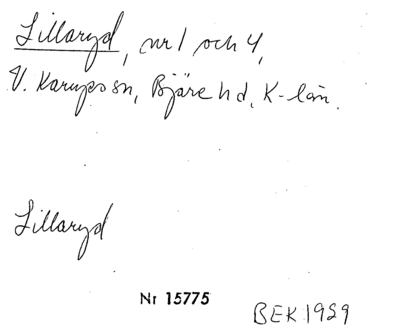 Lillaryd, nr 1 och 4,
V. Karups sn, Bjäre hd, K-län.
Lillaryd
Nr 15775
BEK 1929